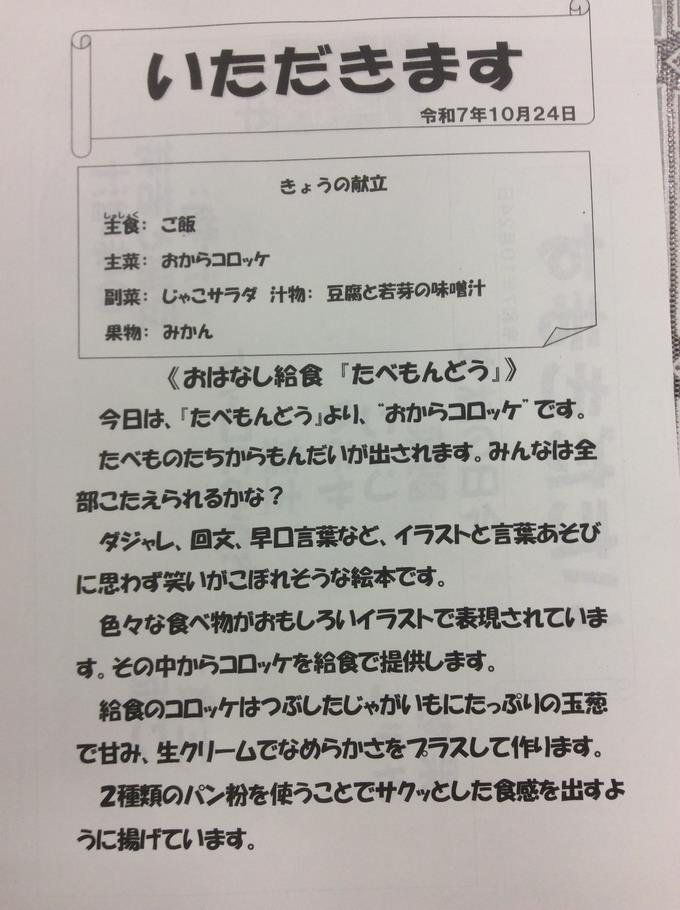 いただきます
令和7年10月24日
きょうの献立
主食： ご飯
主菜： おからコロッケ
副菜： じゃこサラダ 汁物： 豆腐と若芽の味噌汁
果物： みかん
《おはなし給食 『たべもんどう』》
今日は、『たべもんどう』より、“おからコロッケ”です。
たべものたちからもんだいが出されます。みんなは全
部こたえられるかな？
ダジャレ、回文、早口言葉など、イラストと言葉あそび
に思わず笑いがこぼれそうな絵本です。
色々な食べ物がおもしろいイラストで表現されていま
す。その中からコロッケを給食で提供します。
給食のコロッケはつぶしたじゃがいもにたっぷりの玉葱
で甘み、生クリームでなめらかさをプラスして作ります。
2種類のパン粉を使うことでサクッとした食感を出すよ
うに揚げています。